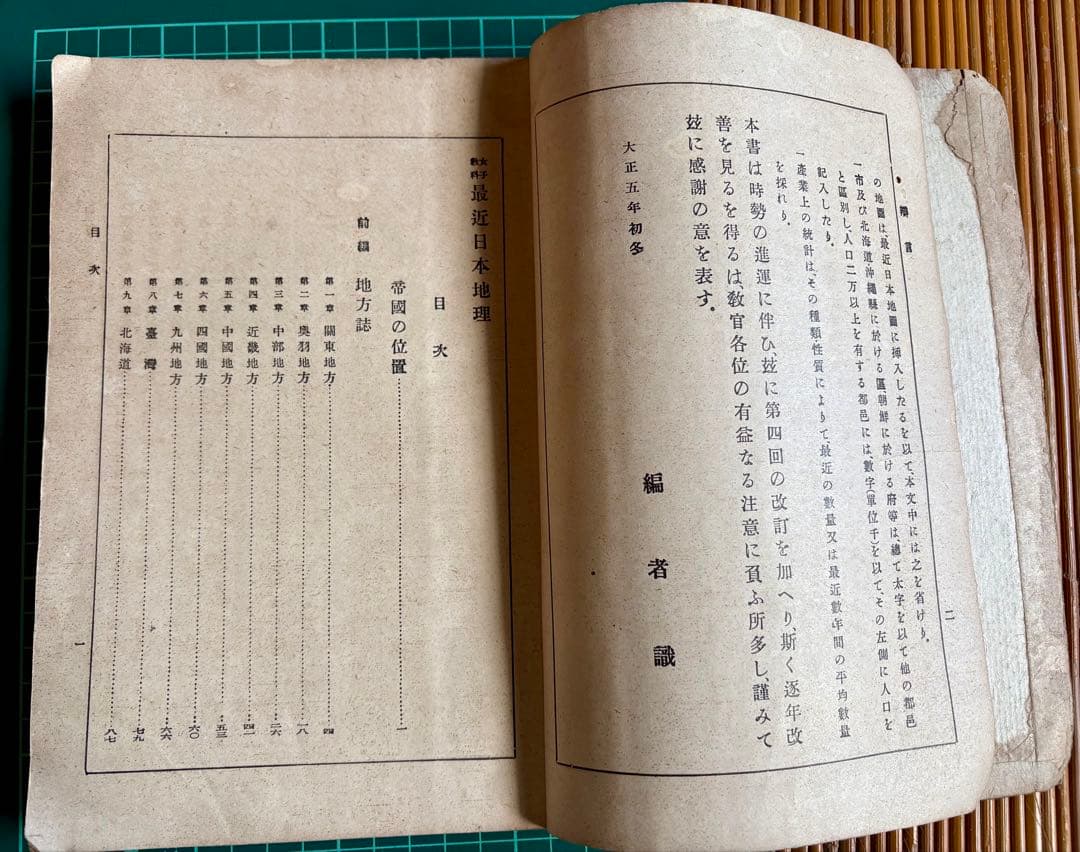 緒言
二
の地圖は、最近日本地圖に挿入したるを以て、本文中には之を省けり。
一市及び北海道、沖繩縣に於ける區、朝鮮に於ける府等は、總て太字を以て他の都邑
と區別し、人口二万以上を有する都邑には、數字(單位千)を以て、その左側に人口を
記入したり。
一產業上の統計は、その種類性質によりて、最近の數量又は最近數年間の平均數量
を採れり。
本書は時勢の進運に伴ひ、玆に第四回の改訂を加へり、斯く逐年改
善を見るを得るは、敎官各位の有益なる注意に負ふ所多し、謹みて
玆に感謝の意を表す。
大正五年初冬
編者識
女子敎科 最近日本地理
目次
帝國の位置 一
前編 地方誌
第一章 關東地方 四
第二章 奧羽地方 一八
第三章 中部地方 二六
第四章 近畿地方 四一
第五章 中國地方 五三
第六章 四國地方 六〇
第七章 九州地方 六六
第八章 臺灣 七九
第九章 北海道 八七
目次
一